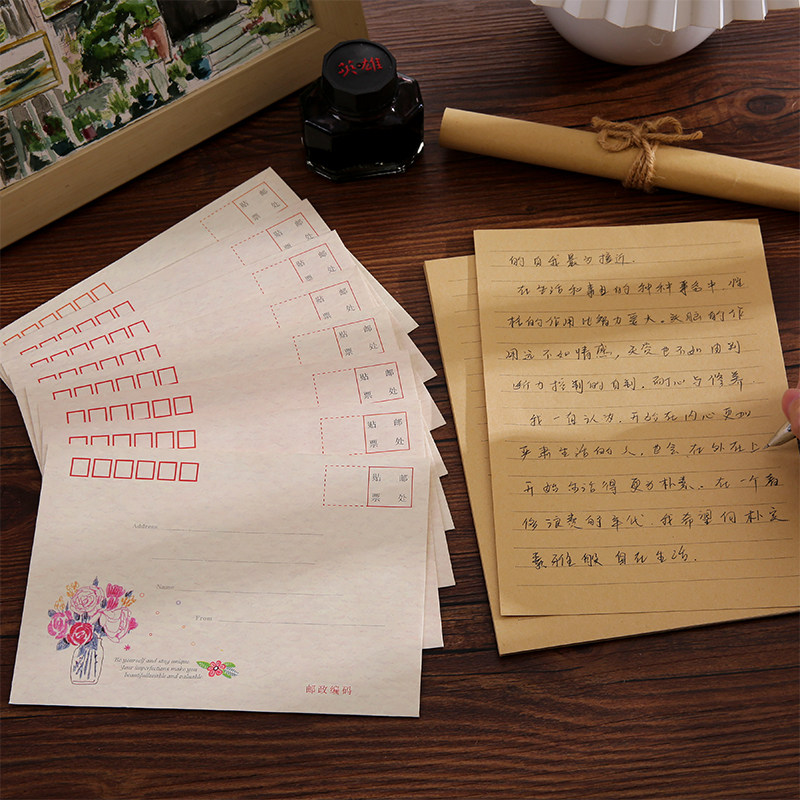 英雄
贴 邮
票 处
贴 邮
票 处
贴 邮
票 处
贴 邮
票 处
贴 邮
票 处
贴 邮
票 处
贴 邮
票 处
贴 邮
票 处
Address
Name
From
Be yourself and stay unique.
Your imperfections make you
beautiful,lovable and valuable
邮政编码
的自我最为接近.
在生活和事业的种种事务中,性
格的作用比智力要大。头脑的作
用远不如情感,天资也不如由判
断力控制的自制、耐心与修养
我一直认为,开始在内心更加
严肃生活的人,也会在外在上
开始生活得更为朴素。在一个奢
侈浪费的年代,我希望何朴实
素雅般自在生活.